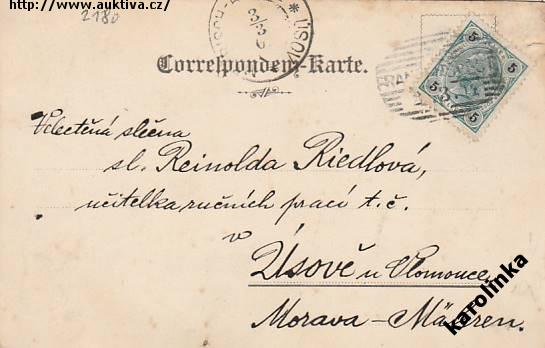 http://www.auktiva.cz/
2180
* ÚSOV
3/3
Correspondenz-Karte.
5 5 5 5
Velectěná slečna
sl. Reinolda Riedlová,
učitelka ručních prací t. č.
v
Úsově u Olomouce,
Morava – Mähren.
karolinka